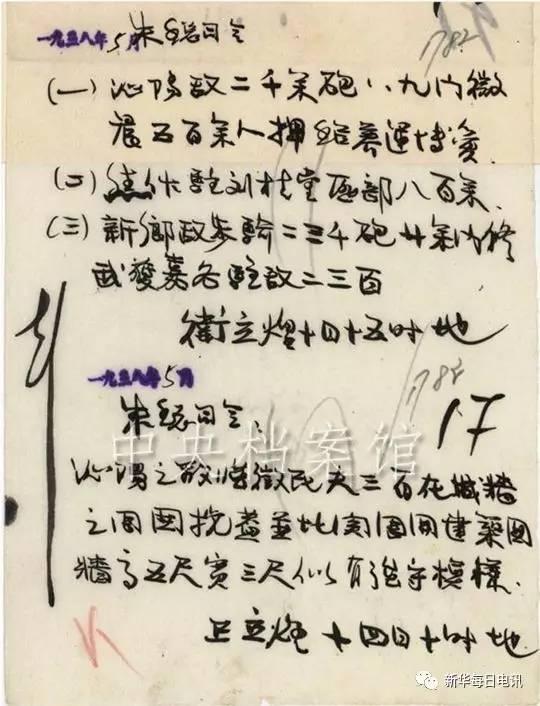 一九三八年5月 朱总司令
1782
(一)沁阳敌二千余砲八九门微
晨五百余人押给养运博爱
(二)焦作驻刘桂堂匪部八百余、
(三)新鄉敌步騎二三千砲廿余门修
武獲嘉各駐敌二三百
衛立煌十四十五时 地
一九三八年5月
1784
朱总司令、
17
中央档案馆
沁陽之敌 徵民夫三百在城牆
之周围挖 並 周围建築围
牆高五尺寬三尺似有 守模樣、
卫立煌 十四日十时 地
新华每日电讯